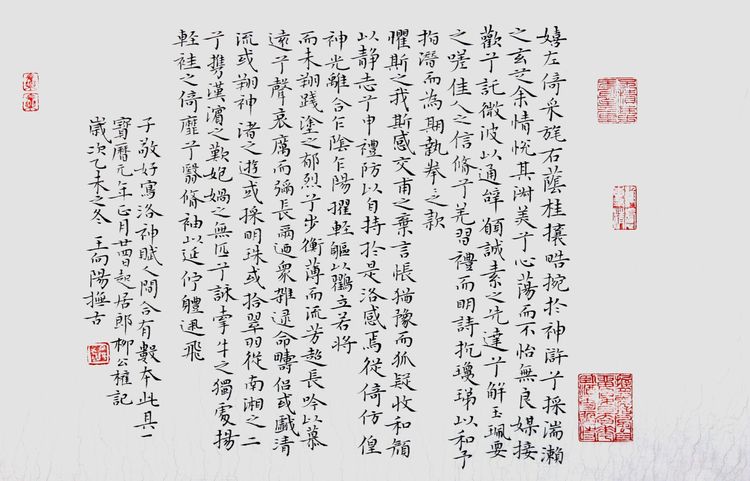 嬉左倚采旄右蔭桂攘晧捥於神滸兮採湍瀨
之玄芝余情悅其淑美兮心蕩而不怡無良媒接
歡兮託微波以通辭願誠素之先達兮解玉珮要
之嗟佳人之信脩兮羌習禮而明詩抗瓊珶以和予
指潛而為期執拳之款
懼斯之我斯感交甫之棄言悵猶豫而狐疑收和顏
以靜志兮申禮防以自持於是洛感焉徙倚仿偟
神光離合乍陰乍陽擢輕軀以鸖立若將
而未翔踐塗之郁烈兮步衡薄而流芳超長吟以慕
遠兮聲哀厲而彌長爾迺衆雜遝命疇侶或戲清
流或翔神渚之遊或採明珠或拾翠羽從南湘之二
兮攜漢濱之歎匏媧之無匹兮詠牽牛之獨處揚
輕袿之倚靡兮翳脩袖以延佇體迅飛
子敬好寫洛神賦人間合有數本此其一
寶曆元年正月廿四日起居郎柳公權記
歲次乙未之冬 王向陽撫古